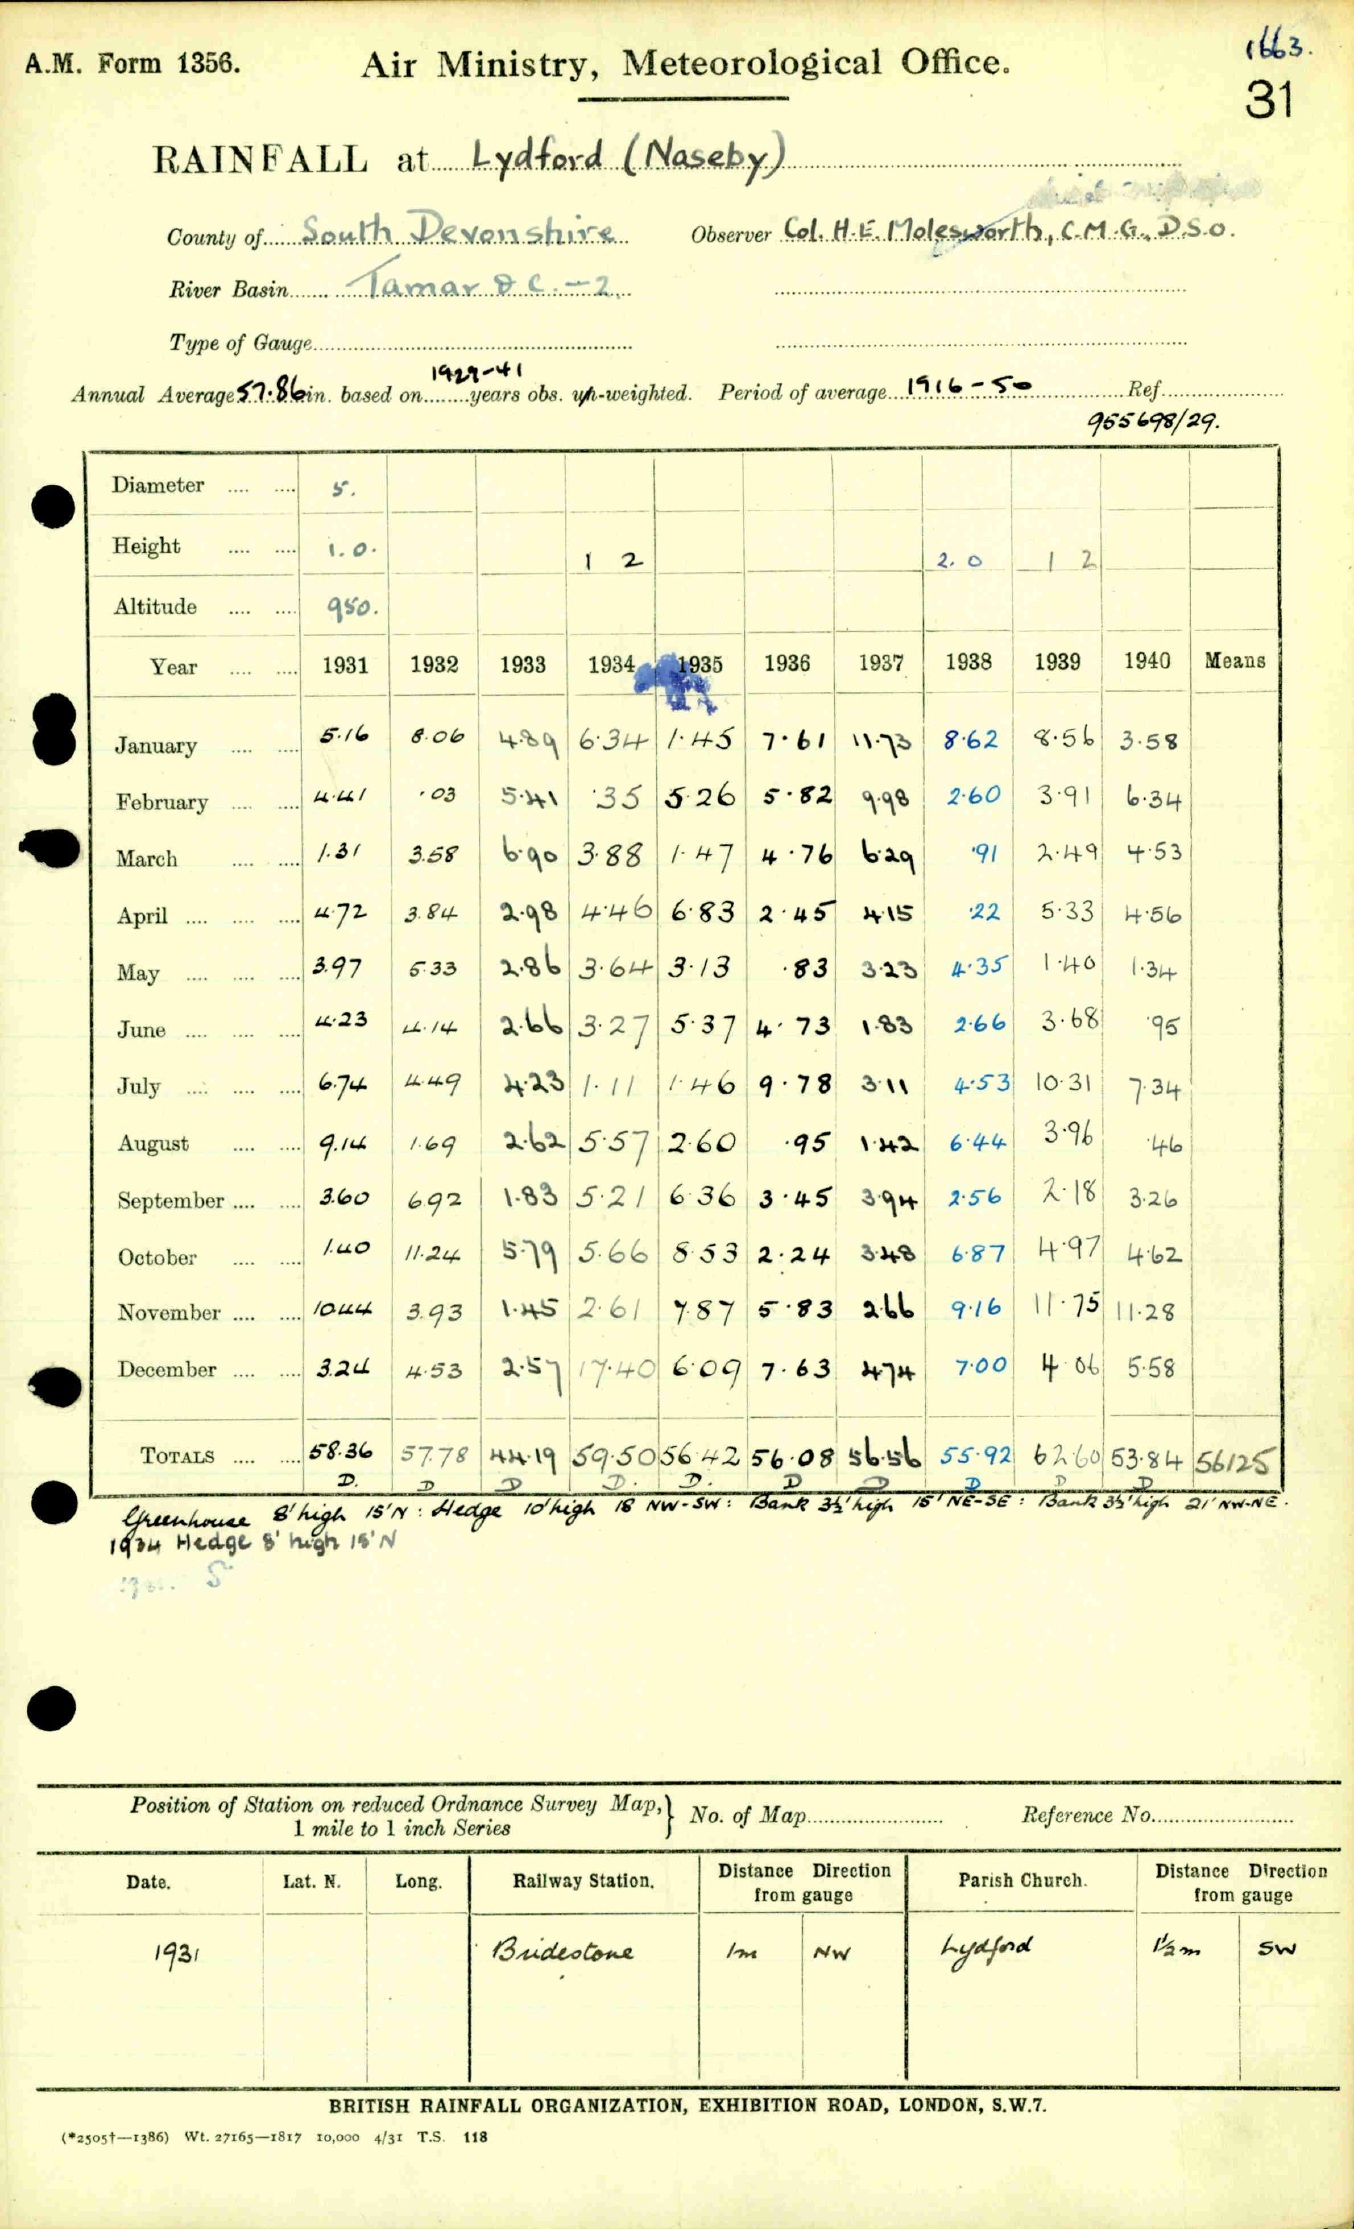 A.M. Form 1356.
Air Ministry, Meteorological Office.
1663.
31
RAINFALL at Lydford (Naseby)
County of South Devonshire Observer Col. H.E. Molesworth, C.M.G., D.S.O.
River Basin Tamar &C. - 2.
Type of Gauge
1929-41
Annual Average 57.86 in. based on years obs. un-weighted. Period of average 1916-50 Ref.
955698/29.
Diameter 5.
Height 1.0. 1 2 2.0 1 2
Altitude 950.
Year 1931 1932 1933 1934 1935 1936 1937 1938 1939 1940 Means
January 5.16 8.06 4.89 6.34 1.45 7.61 11.73 8.62 8.56 3.58
February 4.41 .03 5.41 .35 5.26 5.82 9.98 2.60 3.91 6.34
March 1.31 3.58 6.90 3.88 1.47 4.76 6.29 .91 2.49 4.53
April 4.72 3.84 2.98 4.46 6.83 2.45 4.15 .22 5.33 4.56
May 3.97 5.33 2.86 3.64 3.13 .83 3.23 4.35 1.40 1.34
June 4.23 4.14 2.66 3.27 5.37 4.73 1.83 2.66 3.68 .95
July 6.74 4.49 4.23 1.11 1.46 9.78 3.11 4.53 10.31 7.34
August 9.14 1.69 2.62 5.57 2.60 .95 1.42 6.44 3.96 .46
September 3.60 6.92 1.83 5.21 6.36 3.45 3.94 2.56 2.18 3.26
October 1.40 11.24 5.79 5.66 8.53 2.24 3.48 6.87 4.97 4.62
November 10.44 3.93 1.45 2.61 7.87 5.83 2.66 9.16 11.75 11.28
December 3.24 4.53 2.57 17.40 6.09 7.63 4.74 7.00 4.06 5.58
TOTALS 58.36 57.78 44.19 59.50 56.42 56.08 56.56 55.92 62.60 53.84 56125
D. D D D. D. D D D D D
Greenhouse 8' high 15' N : Hedge 10' high 18 NW-SW : Bank 3½' high 15' NE-SE : Bank 3½' high 21' NW-NE.
1934 Hedge 8' high 15' N
5
Position of Station on reduced Ordnance Survey Map, } No. of Map Reference No.
1 mile to 1 inch Series
Date. Lat. N. Long. Railway Station. Distance Direction from gauge Parish Church. Distance Direction from gauge
1931 Bridestone 1m NW Lydford 1½m SW
BRITISH RAINFALL ORGANIZATION, EXHIBITION ROAD, LONDON, S.W.7.
(*2505†—1386) Wt. 27165—1817 10,000 4/31 T.S. 118